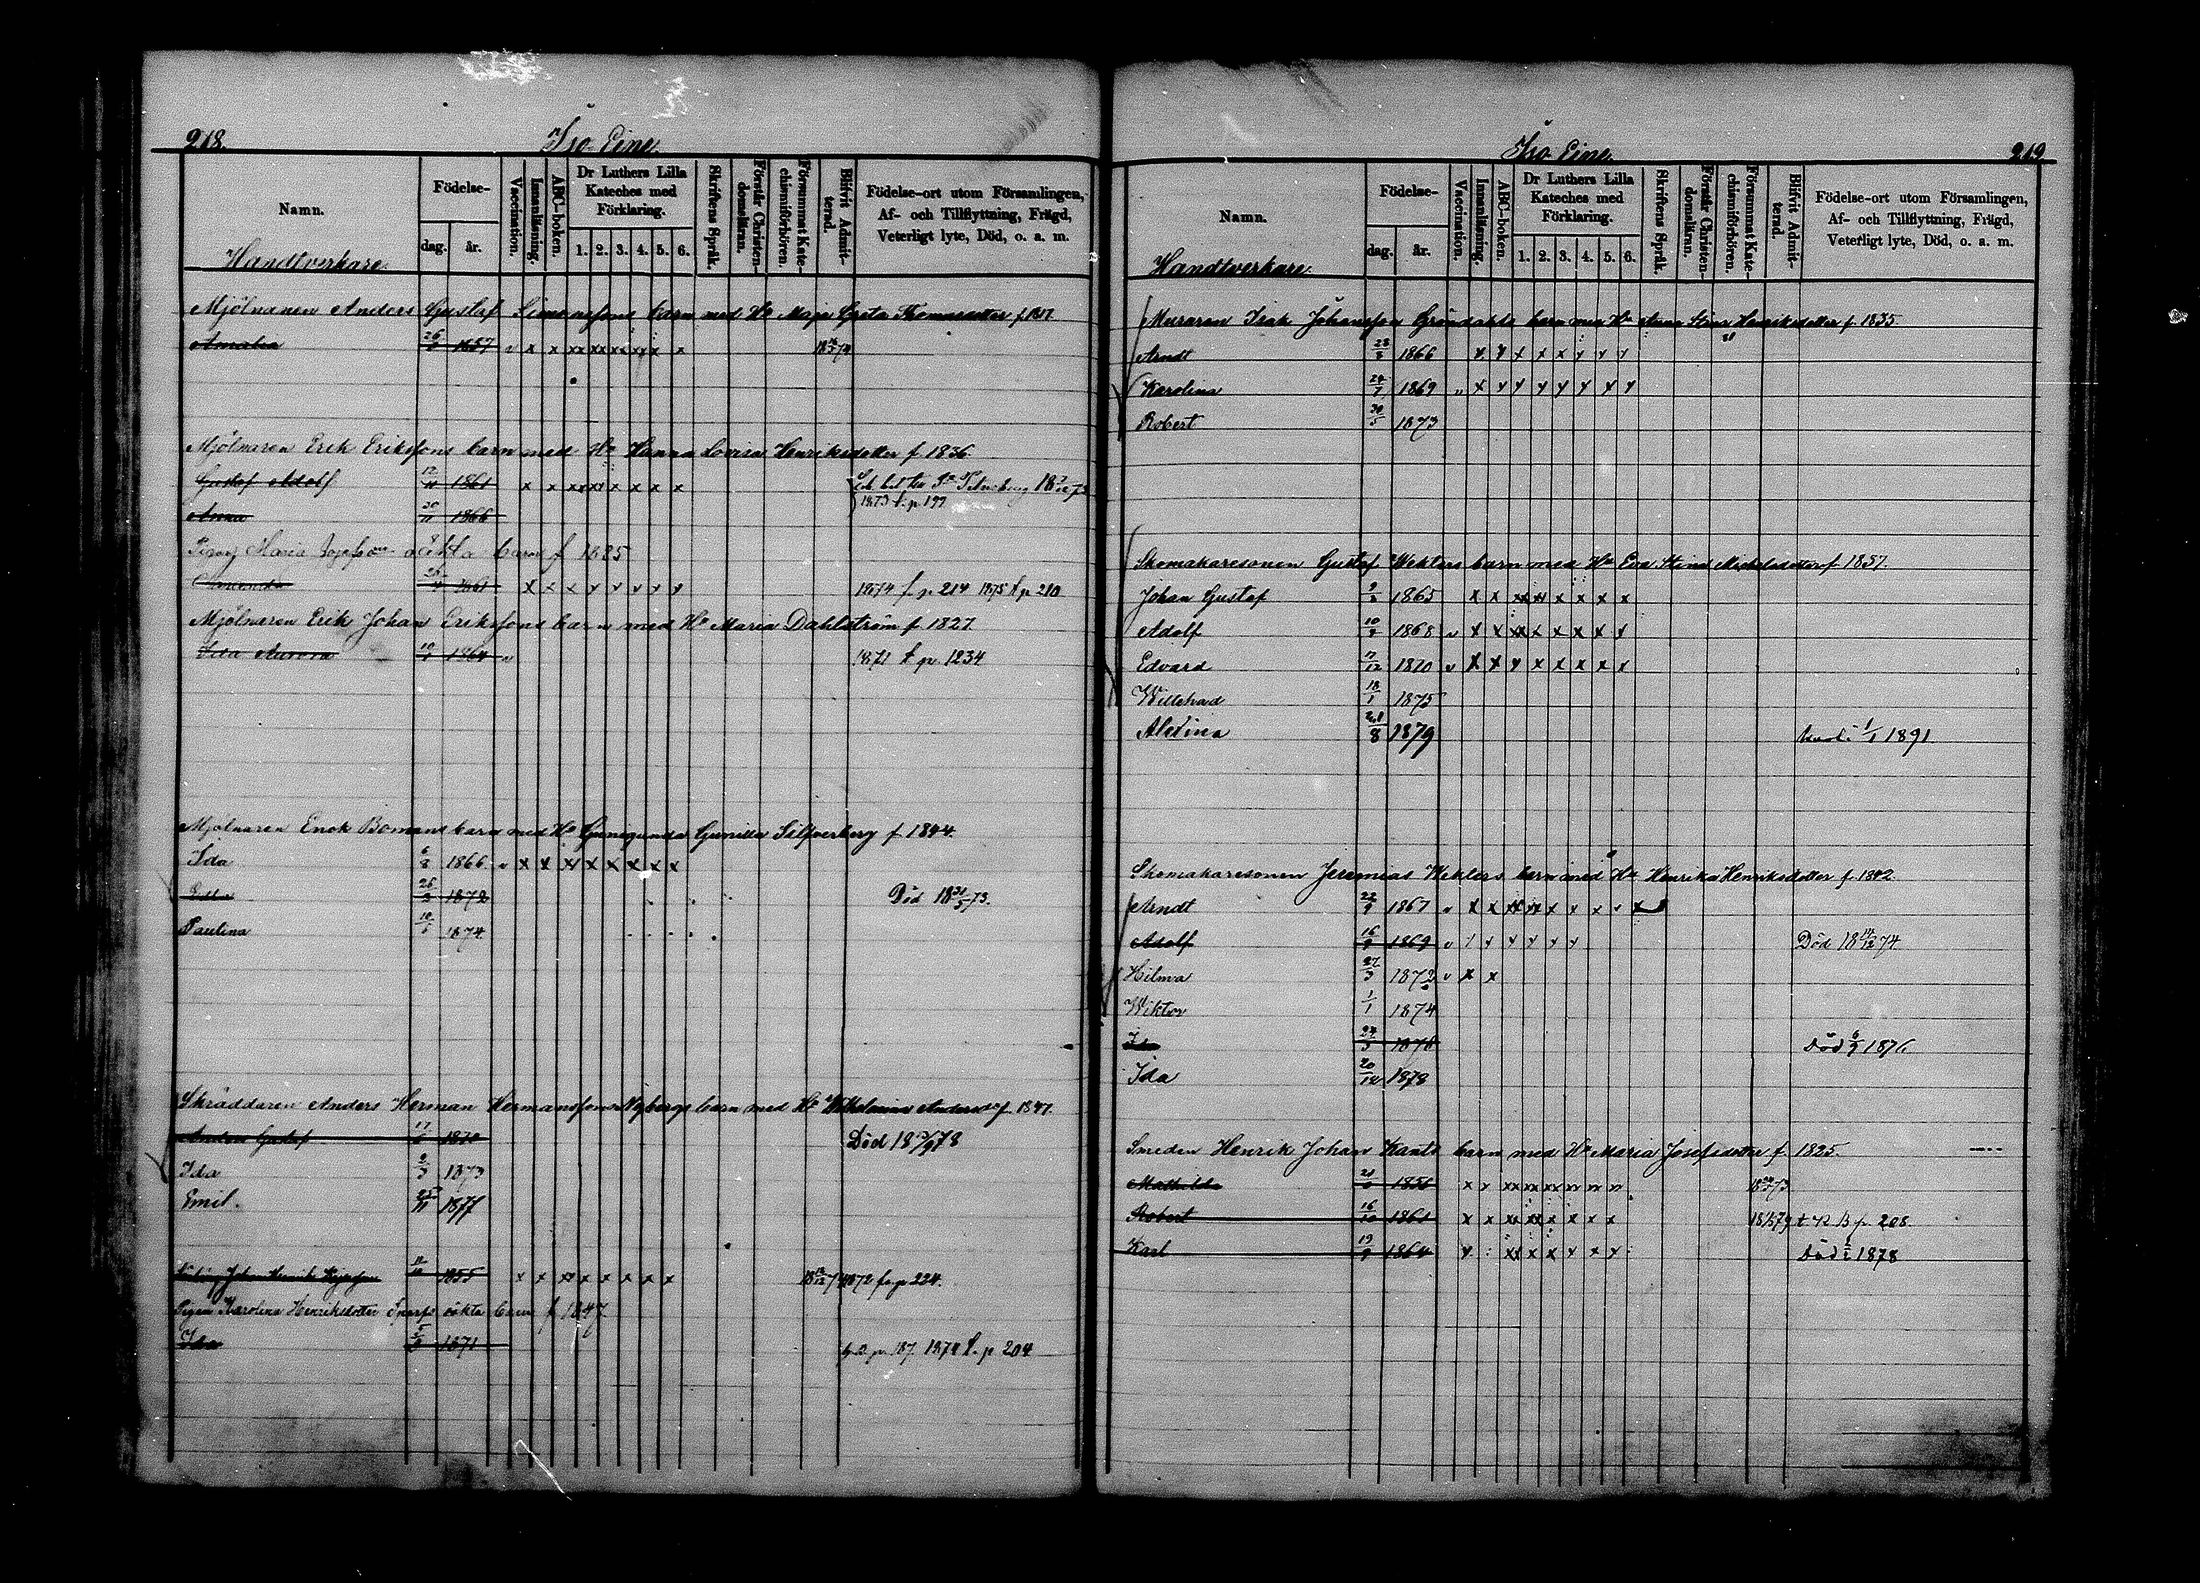 218.
Iso Eine.
Namn.
Födelse-
dag.
år.
Vaccination.
Innanläsning.
ABC-boken.
Dr Luthers Lilla Kateches med Förklaring.
1. 2. 3. 4. 5. 6.
Skriftens Språk.
Förstår Christendomsläran.
Försummat Katechismiförhören.
Blifvit Admitterad.
Födelse-ort utom Församlingen, Af- och Tillflyttning, Frägd, Veterligt lyte, Död, o. a. m.
Handtverkare.
Mjölnaren Anders Gustaf barn med Hu Maja Greta f. 1817.
Amalia 26 1857 v x x xx xx xx xx x x
Mjölnaren Erik Erikssons barn med Hu Hanna Lovisa Henriksdotter f 1836.
Gustaf Adolf 12/10 1861 x x xx xx x x x x
1873 t. p. 197
Anna 30/11 1866
Maria oäkta barn f 1825
Amanda 1861 x x x x x x x x 1874 f p. 214 1875 t p 210
Mjölnaren Erik Johan Erikssons barn med Hu Maria Dahlström f 1827.
Ida Aurora 1864 v 1871 t p. 1234
Mjölnaren Enok Bomans barn med Hu Gunilla Silfverberg f 1844.
Ida 6/8 1866 v x x xx x x x x x
Edla 26/2 1872 Död 18 31/5 73.
Paulina 1874
Skräddaren Anders Herman Hermanssons Nybergs barn med Hu Wilhelmina Andersd. f 1847.
Anders Gustaf 17 1870 Död 18 78
Ida 2/3 1873
Emil. 25/11 1877
Johan Henrik 1855 x x xx x x x x x 1872 fr p 224.
Pigan Karolina Henriksdotter oäkta barn f 1847
Ida 5 1871 p. 187. 1874 t. p 204
219
Iso Eine.
Namn.
Födelse-
dag.
år.
Vaccination.
Innanläsning.
ABC-boken.
Dr Luthers Lilla Kateches med Förklaring.
1. 2. 3. 4. 5. 6.
Skriftens Språk.
Förstår Christendomsläran.
Försummat Katechismiförhören.
Blifvit Admitterad.
Födelse-ort utom Församlingen, Af- och Tillflyttning, Frägd, Veterligt lyte, Död, o. a. m.
Handtverkare.
Muraren Isak Johansson Gröndahls barn med Hu Anna Stina Henriksdotter f. 1835.
Arndt 28/8 1866 x x x x x x x x
Karolina 24/7 1869 v x x x x x x x x
Robert 30/5 1873
Skomakaresonen Gustaf Weklers barn med Hu Eva Stina Mickelsdotter f 1837.
Johan Gustaf 1865 x x xx xx x x x x
Adolf 10 1868 v x x xx x x x x x
Edvard 17/12 1870 v x x x x x x x x
Willehad 18/1 1875
Alexina 21/8 1879 1/1 1891
Skomakaresonen Jeremias Weklers barn med Hu Henrika Henriksdotter f. 1842.
Arndt 22/9 1867 v x x xx xx x x x x x
Adolf 16 1869 v / x x x x x Död 18 14/12 74.
Hilma 27/3 1872 v x x
Wiktor 1/1 1874
Ida 24/3 1876 Död 6/7 1876
Ida 20/12 1878
Smeden Henrik Johan Kants barn med Hu Maria Josefsdotter f. 1825.
Mathilda 1856 x x xx xx xx
Robert 16/10 1861 x x xx xx x x x x t p. 208.
Karl 19/9 1864 x xx x x x x x Död 1878